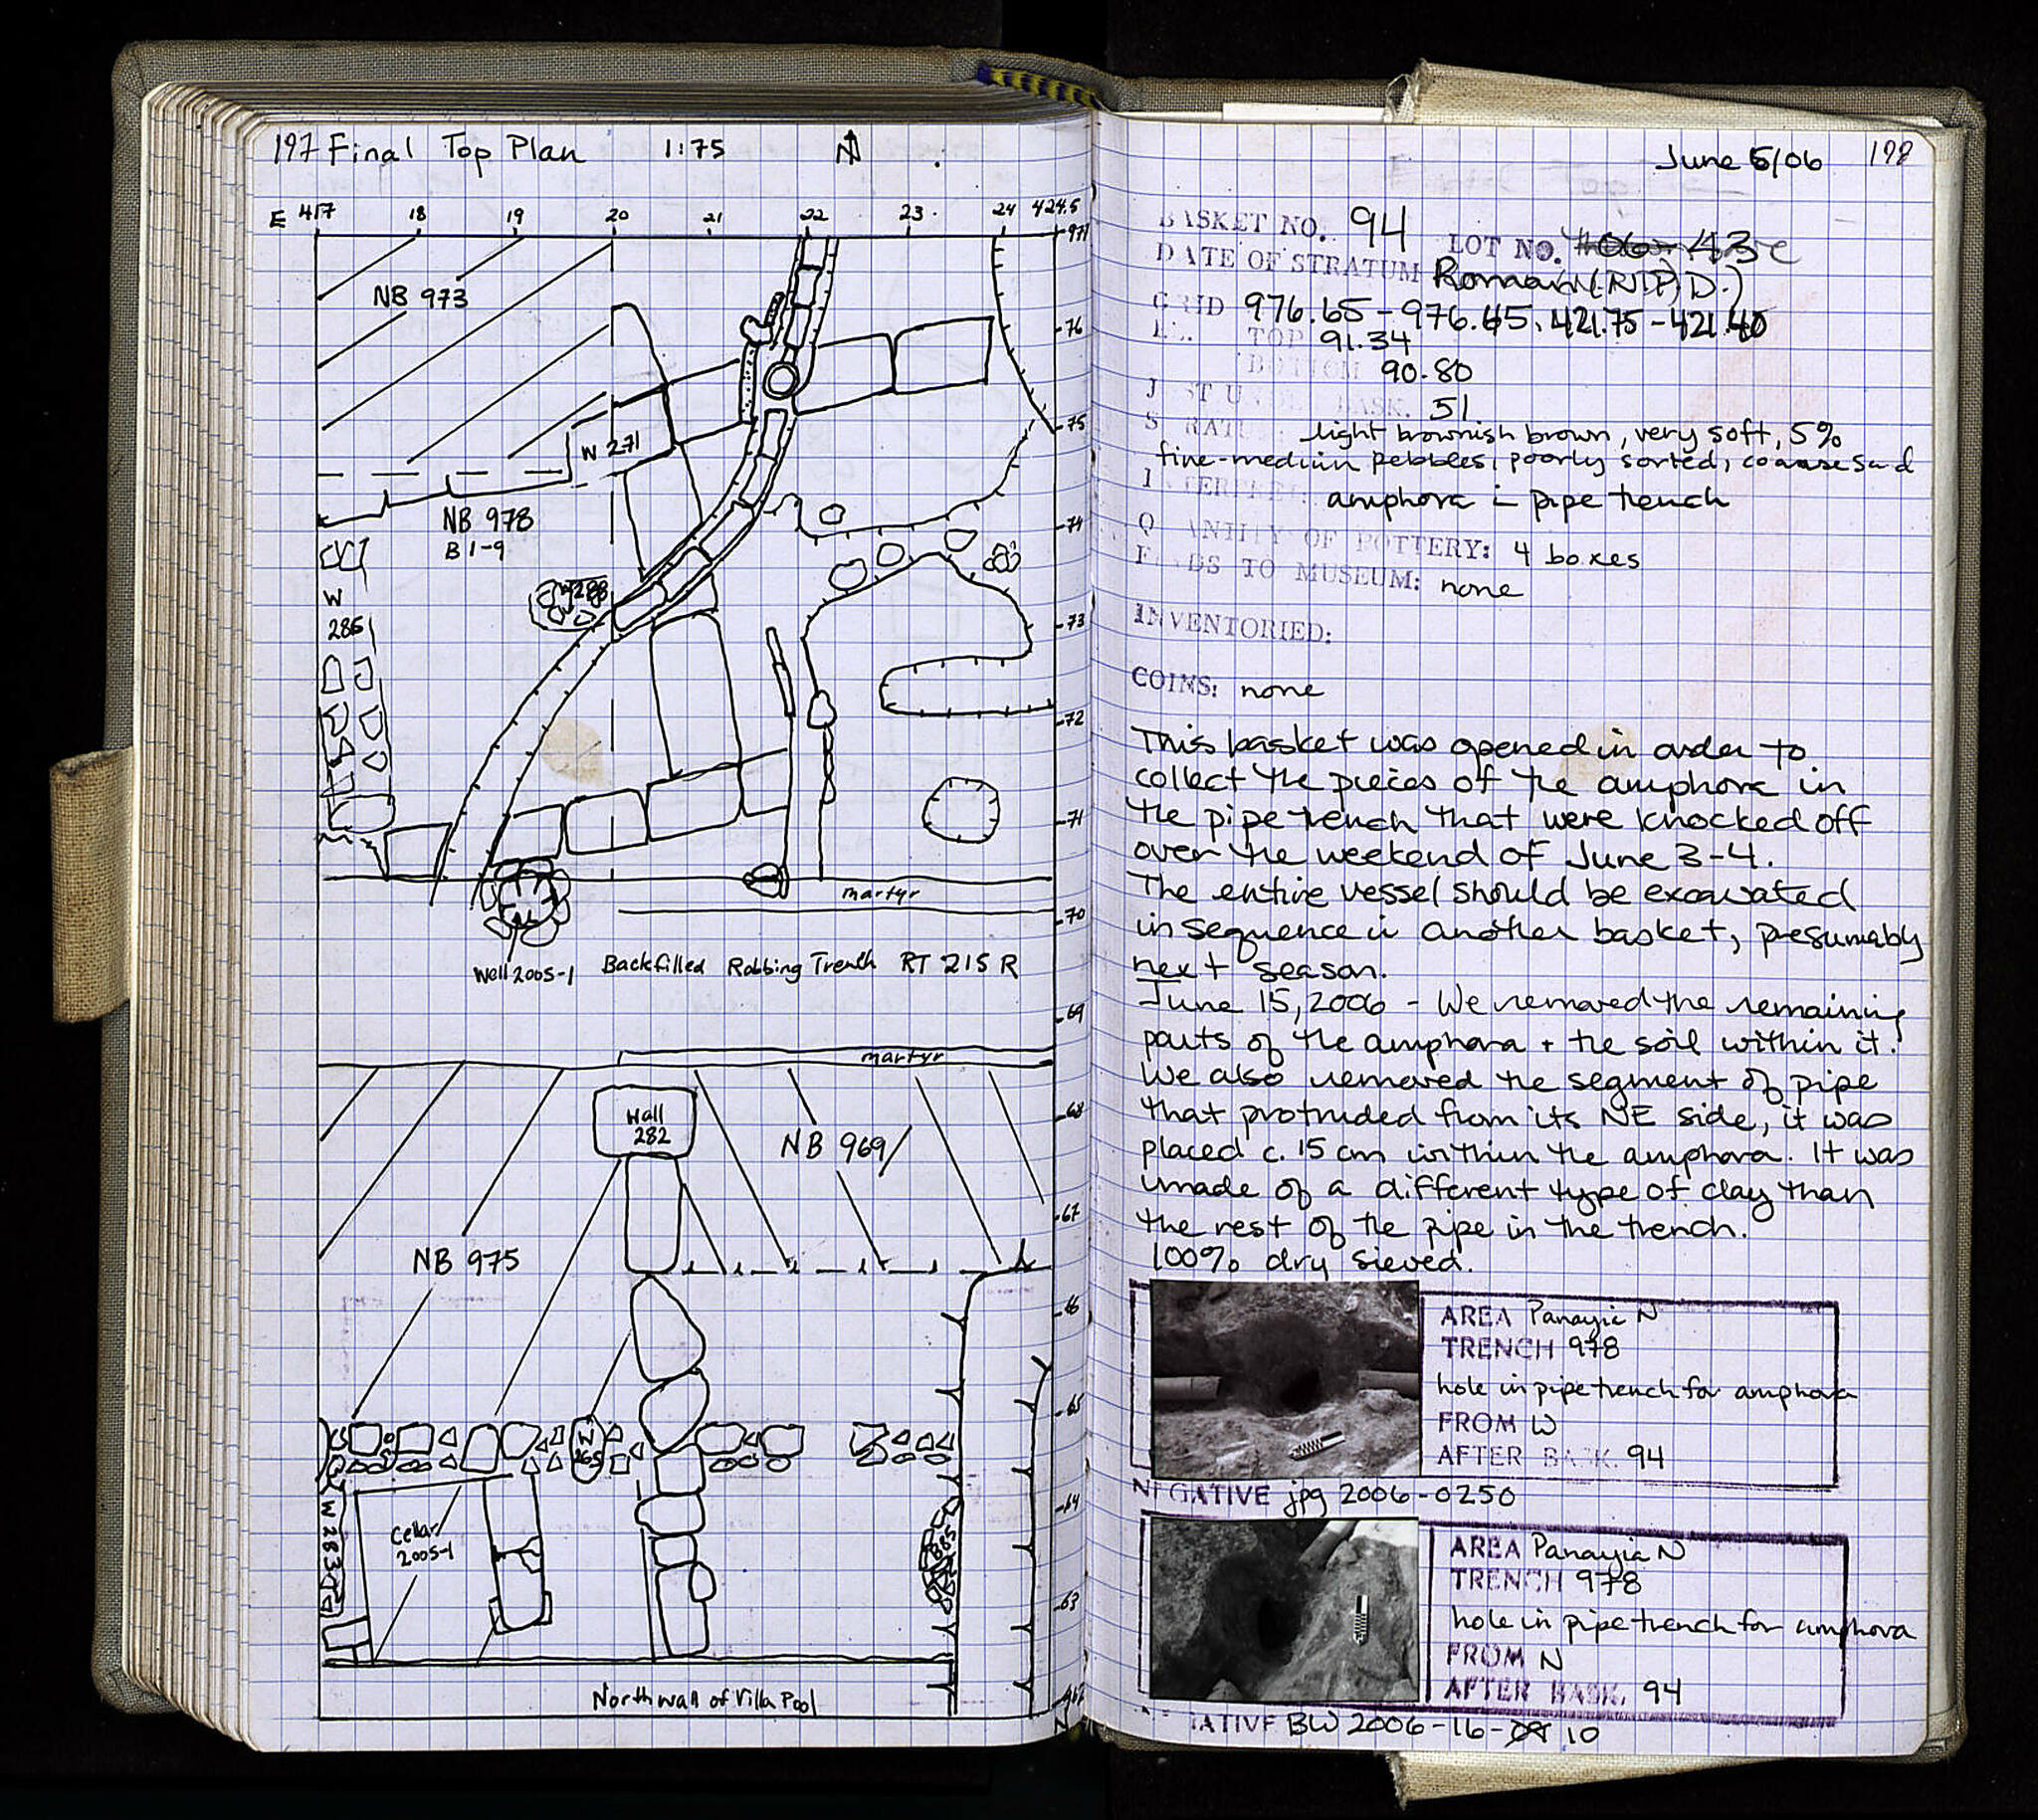 197 Final Top Plan 1:75 N
E 417 18 19 20 21 22 23 24 424.5
971
NB 973
76
75
W 271
NB 978
B 1-9
74
W
286
W288
73
72
71
martyr
70
Well 2005-1 Backfilled Robbing Trench RT 215 R
69
martyr
Wall
282
68
NB 969
67
NB 975
66
65
W
265
64
W 283
Cellar
2005-1
63
North wall of Villa Pool
June 5/06 198
BASKET NO. 94 LOT NO.
DATE OF STRATUM Roman
GRID 976.65-976.45, 421.75-421.40
TOP 91.34
BOTTOM 90.80
51
light brownish brown, very soft, 5%
fine-medium pebbles, poorly sorted, coarse sand
amphora in pipe trench
QUANTITY OF POTTERY: 4 boxes
FINDS TO MUSEUM: none
INVENTORIED:
COINS: none
This basket was opened in order to
collect the pieces of the amphora in
the pipe trench that were knocked off
over the weekend of June 3-4.
The entire vessel should be excavated
in sequence in another basket, presumably
next season.
June 15, 2006 - We removed the remaining
parts of the amphora + the soil within it.
We also removed the segment of pipe
that protruded from its NE side, it was
placed c. 15 cm within the amphora. It was
made of a different type of clay than
the rest of the pipe in the trench.
100% dry sieved.
AREA Panayia N
TRENCH 978
hole in pipe trench for amphora
FROM W
AFTER BASK. 94
NEGATIVE jpg 2006-0250
AREA Panayia N
TRENCH 978
hole in pipe trench for amphora
FROM N
AFTER BASK. 94
NEGATIVE BW 2006-16-10